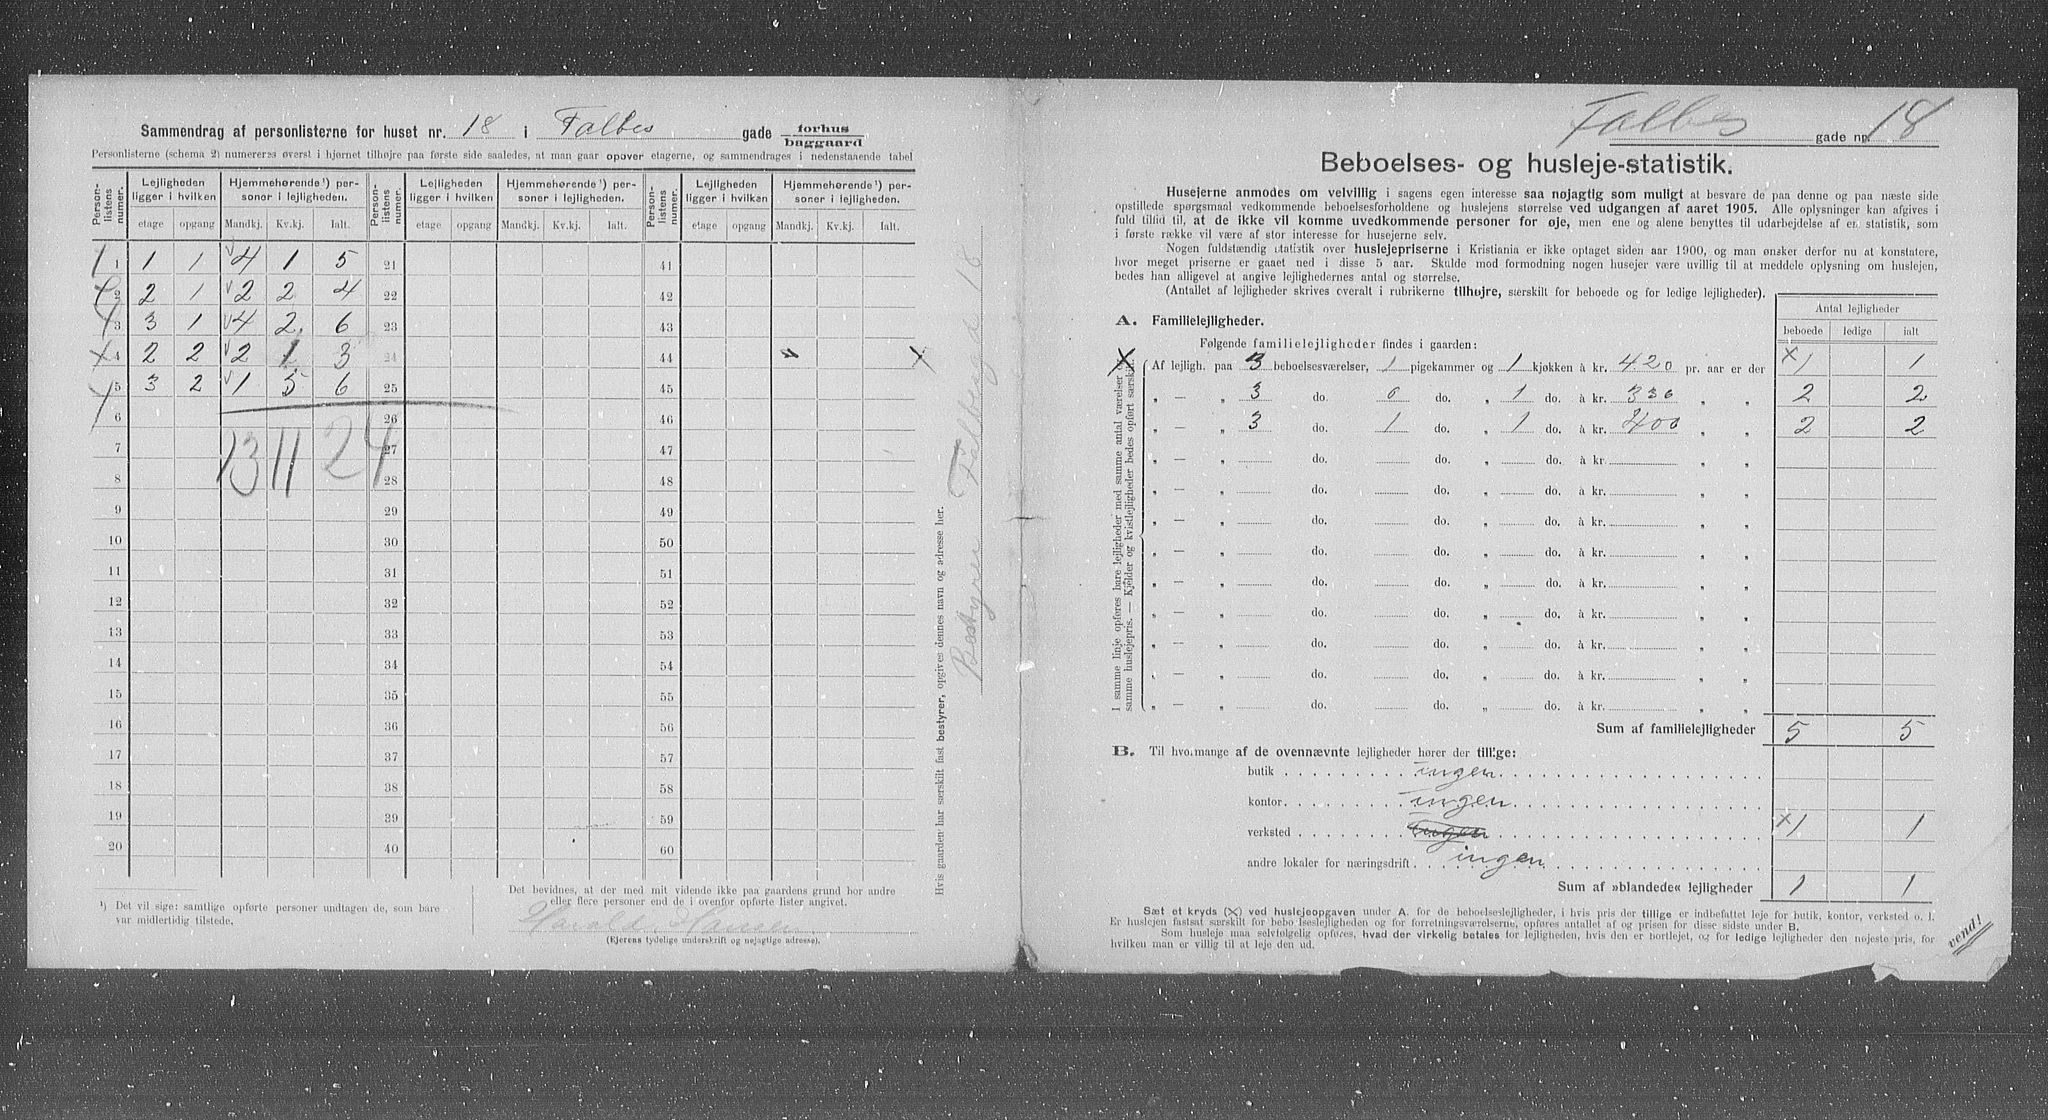 Sammendrag af personlisterne for huset nr. 18 i Falbes gade forhus baggaard
Personlisterne (schema 2) numereres øverst i hjørnet tilhøjre paa første side saaledes, at man gaar opover etagerne, og sammendrages i nedenstaaende tabel
Person-listens numer. Lejligheden ligger i hvilken Hjemmehørende¹) personer i lejligheden. Person-listens numer. Lejligheden ligger i hvilken Hjemmehørende¹) personer i lejligheden. Person-listens numer. Lejligheden ligger i hvilken Hjemmehørende¹) personer i lejligheden.
etage opgang Mandkj. Kv.kj. Ialt. etage opgang Mandkj. Kv.kj. Ialt. etage opgang Mandkj. Kv.kj. Ialt.
1 1 1 4 1 5 21 41
2 2 1 2 2 4 22 42
3 3 1 4 2 6 23 43
4 2 2 2 1 3 24 44
5 3 2 1 5 6 25 45
6 26 46
7 13 11 24 27 47
8 28 48
9 29 49
10 30 50
11 31 51
12 32 52
13 33 53
14 34 54
15 35 55
16 36 56
17 37 57
18 38 58
19 39 59
20 40 60
¹) Det vil sige: samtlige opførte personer undtagen de, som bare
var midlertidig tilstede.
Det bevidnes, at der med mit vidende ikke paa gaardens grund bor andre
eller flere personer end de i ovenfor opførte lister angivet.
Harald Hansen
(Ejerens tydelige underskrift og nøjagtige adresse).
Hvis gaarden har særskilt fast bestyrer, opgives dennes navn og adresse her.
Bestyrer Falbesgd 18
Falbes gade nr. 18
Beboelses- og husleje-statistik.
Husejerne anmodes om velvillig i sagens egen interesse saa nøjagtig som muligt at besvare de paa denne og paa næste side
opstillede spørgsmaal vedkommende beboelsesforholdene og huslejens størrelse ved udgangen af aaret 1905. Alle oplysninger kan afgives i
fuld tillid til, at de ikke vil komme uvedkommende personer for øje, men ene og alene benyttes til udarbejdelse af en statistik, som
i første række vil være af stor interesse for husejerne selv.
Nogen fuldstændig statistik over huslejepriserne i Kristiania er ikke optaget siden aar 1900, og man ønsker derfor nu at konstatere,
hvor meget priserne er gaaet ned i disse 5 aar. Skulde mod formodning nogen husejer være uvillig til at meddele oplysning om huslejen,
bedes han alligevel at angive lejlighedernes antal og størrelse.
(Antallet af lejligheder skrives overalt i rubrikerne tilhøjre, særskilt for beboede og for ledige lejligheder).
Antal lejligheder
beboede ledige ialt
A. Familielejligheder.
Følgende familielejligheder findes i gaarden:
I samme linje opføres bare lejligheder med samme antal værelser og
samme huslejepris. — Kjelder og kvistlejligheder bedes opført særskilt.
Af lejligh. paa 3 beboelsesværelser, 1 pigekammer og 1 kjøkken à kr. 420 pr. aar er der × 1 1
„ — „ 3 do. 0 do. „ 1 do. à kr. 330 „ „ 2 2
„ — „ 3 do. 1 do. „ 1 do. à kr. 400 „ „ 2 2
„ — „ do. do. „ do. à kr. „ „
„ — „ do. do. „ do. à kr. „ „
„ — „ do. do. „ do. à kr. „ „
„ — „ do. do. „ do. à kr. „ „
„ — „ do. do. „ do. à kr. „ „
„ — „ do. do. „ do. à kr. „ „
„ — „ do. do. „ do. à kr. „ „
„ — „ do. do. „ do. à kr. „ „
„ — „ do. do. „ do. à kr. „ „
Sum af familielejligheder 5 5
B. Til hvormange af de ovennævnte lejligheder hører der tillige:
butik ingen
kontor ingen
verksted ingen × 1 1
andre lokaler for næringsdrift ingen
Sum af »blandede« lejligheder 1 1
Sæt et kryds (×) ved huslejeopgaven under A. for de beboelseslejligheder, i hvis pris der tillige er indbefattet leje for butik, kontor, verksted o. l.
Er huslejen fastsat særskilt for beboelseslejligheden og for forretningsværelserne, opføres antallet af og prisen for disse sidste under B.
Som husleje maa selvfølgelig opføres, hvad der virkelig betales for lejligheden, hvis den er bortlejet, og for ledige lejligheder den nøjeste pris, for
hvilken man er villig til at leje den ud.
vend!